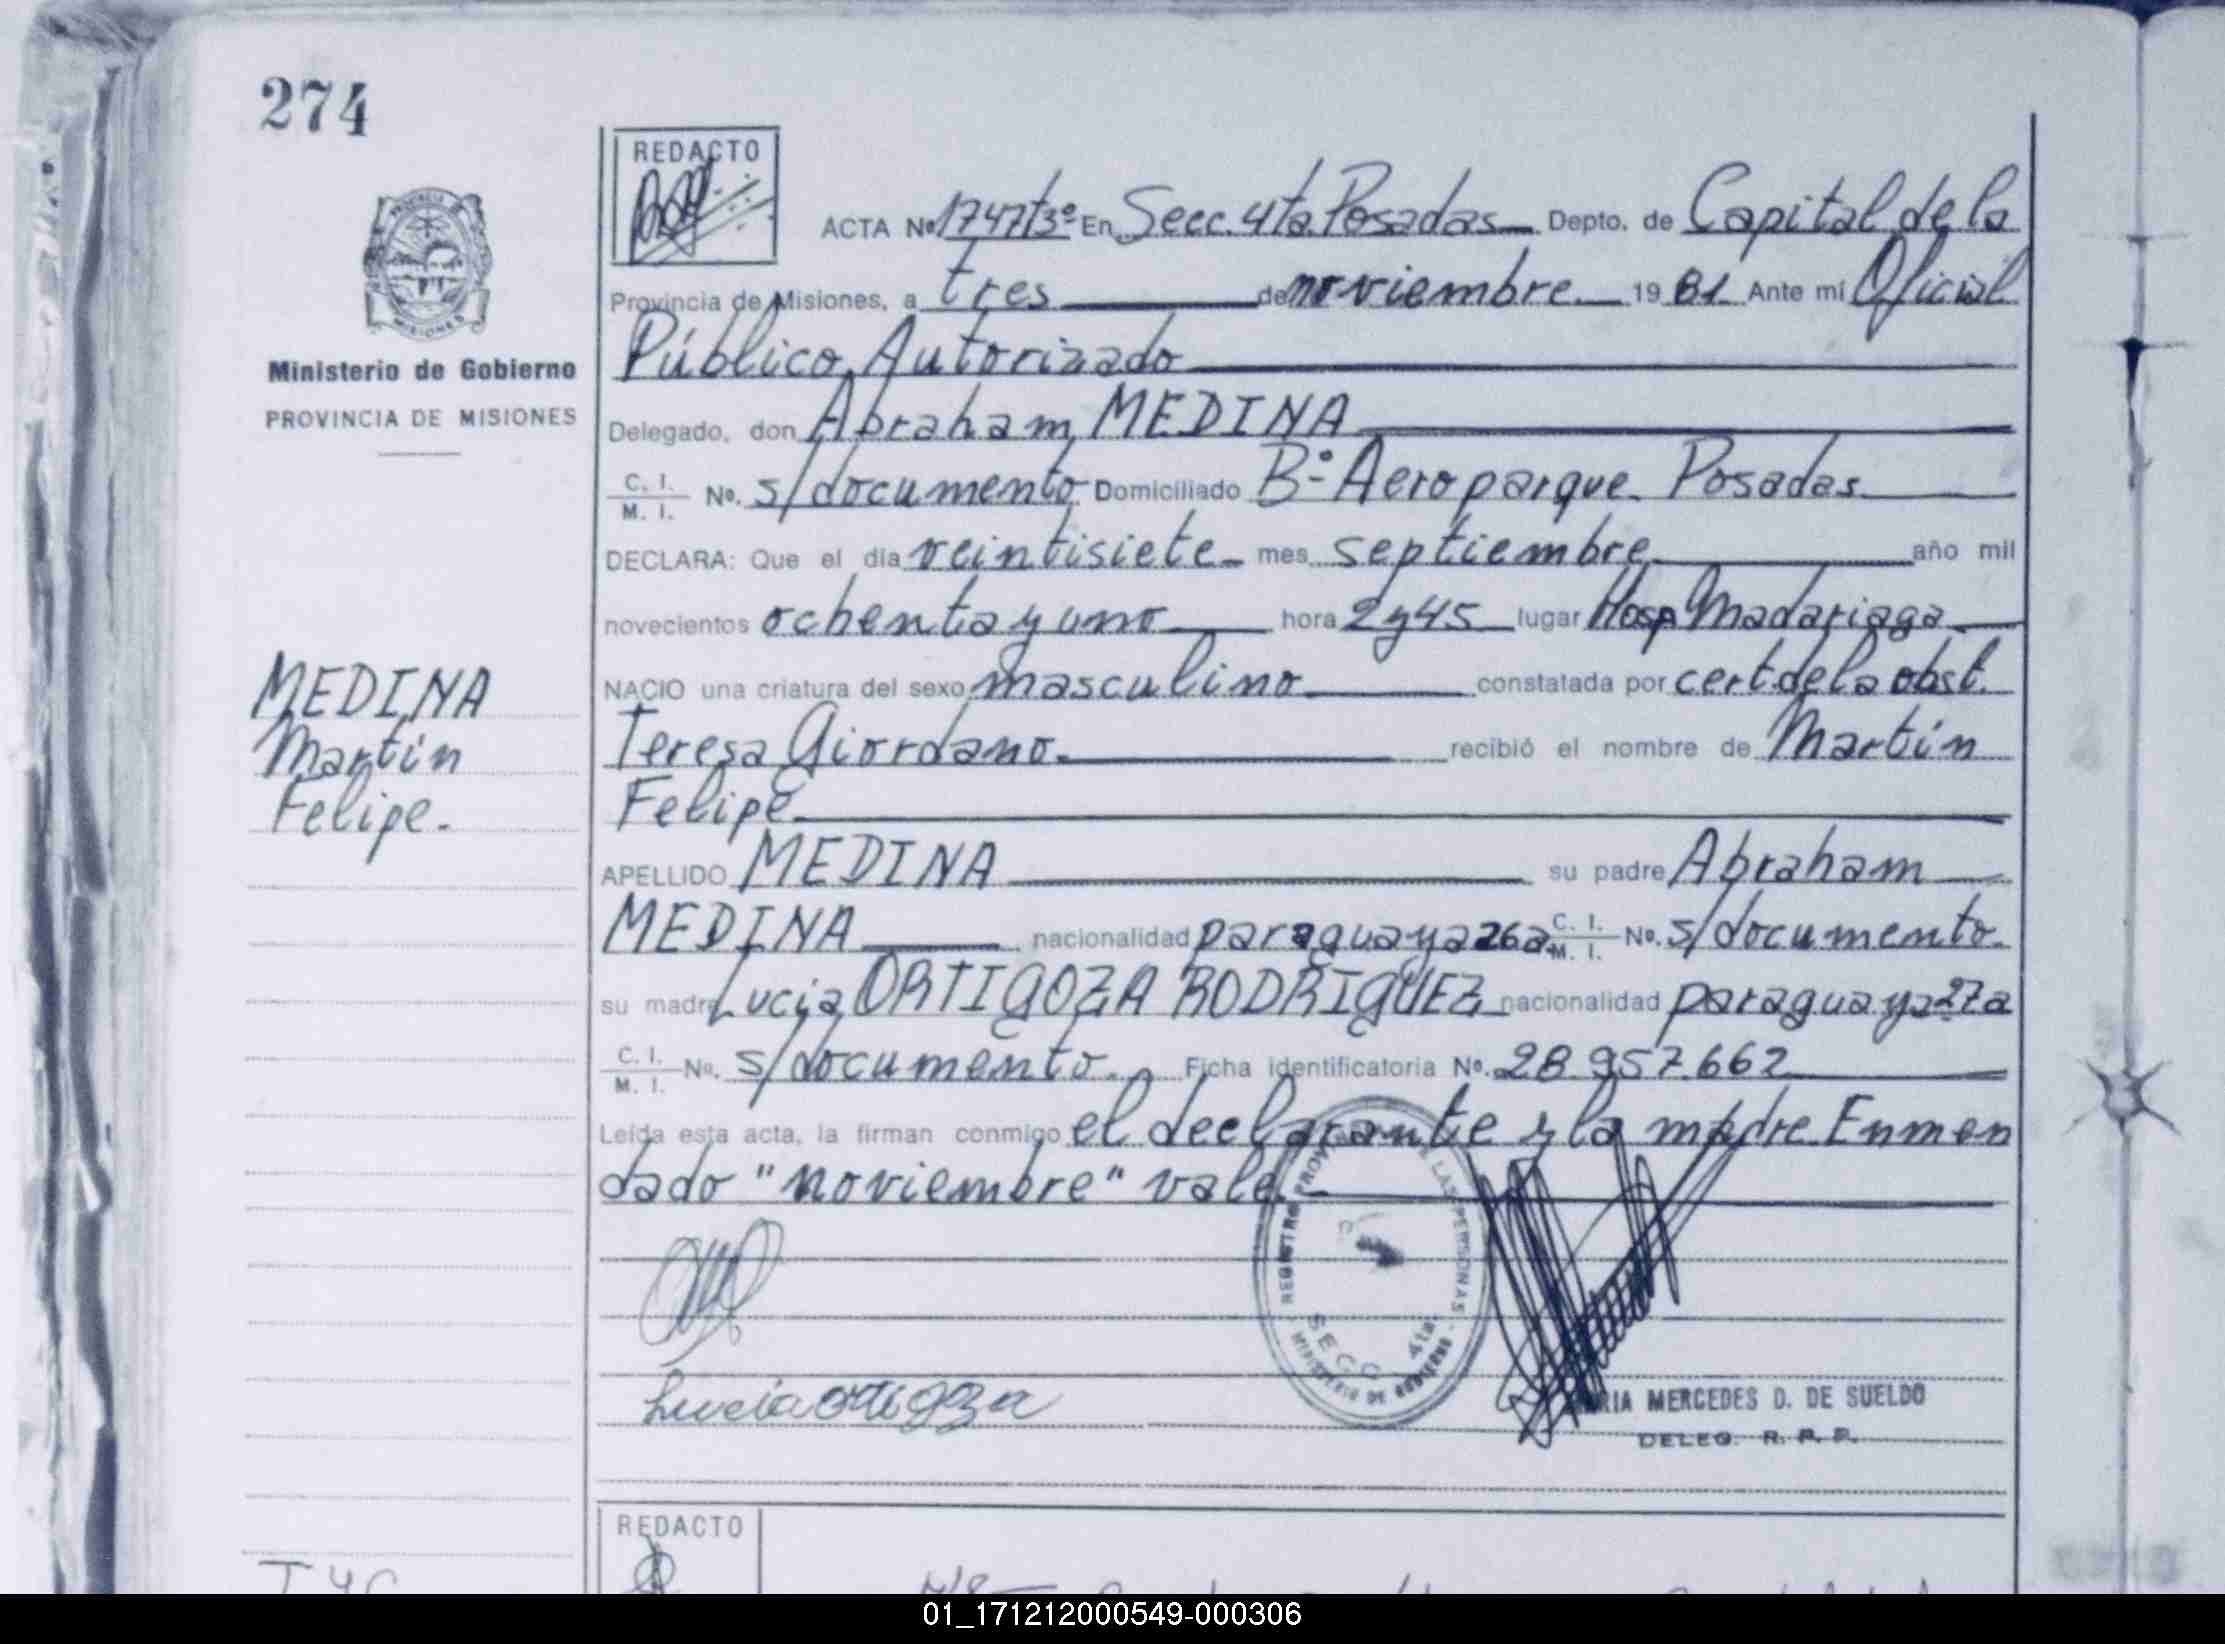 274
REDACTO
ACTA Nº 1747T3º En Secc. 4ta. Posadas Depto. de Capital de la
Provincia de Misiones, a tres de noviembre 19 81 Ante mí Oficial
Público Autorizado
Ministerio de Gobierno
PROVINCIA DE MISIONES
Delegado, don Abraham MEDINA
C. I.
M. I. Nº. s/documento Domiciliado Bº Aeroparque Posadas
DECLARA: Que el día veintisiete mes septiembre año mil
novecientos ochenta y uno hora 2 y 45 lugar Hosp Madariaga
MEDINA
Martín
Felipe.
NACIO una criatura del sexo masculino constatada por cert. de la obst.
Teresa Giordano. recibió el nombre de Martín
Felipe
APELLIDO MEDINA su padre Abraham
MEDINA nacionalidad paraguaya 26a C. I. M. I. Nº. s/documento.
su madre Lucia ORTIGOZA RODRIGUEZ nacionalidad paraguaya 27a
C. I.
M. I. Nº. s/documento. Ficha identificatoria Nº. 28.957.662
Leída esta acta, la firman conmigo el declarante y la madre Enmen
dado "noviembre" vale.
REGISTRO PROVINCIAL DE LAS PERSONAS
SECC. 4ta.
MINISTERIO DE GOBIERNO
Lucia ortigoza
MARIA MERCEDES D. DE SUELDO
DELEG. R. P. P.
REDACTO
01_171212000549-000306